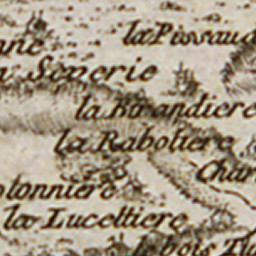 la Pissaud
Senerie
la Birandiere
la Raboliere
Char
olonniere
la Lucettiere
bois